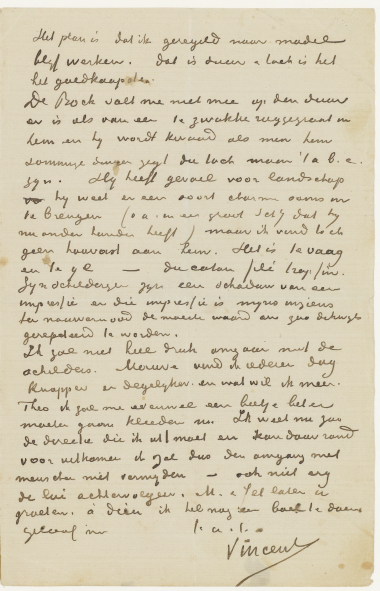 Het plan is dat ik geregeld naar model
blijf werken. dat is duur & toch is het
het goedkoopste.
De Bock valt me niet mee op den duur
er is als van een te zwakke ruggegraat in
hem en hij wordt kwaad als men hem
sommige dingen zegt die toch maar 't a.b.c.
zijn. Hij heeft gevoel voor landschap
hij weet er een soort charme soms in
te brengen (o.a. in een groot schij dat hij
nu onder handen heeft) maar ik vind toch
geen houvast aan hem. Het is te vaag
en te ijl — du coton filé trop fin.
Zijn schilderijen zijn een schaduw van een
impressie en die impressie is mijns inziens
ter nauwernood de moeite waard om zoo dikwijls
gerepeteerd te worden.
Ik zal niet heel druk omgaan met de
schilders. Mauve vind ik iederen dag
knapper en degelijker. en wat wil ik meer.
Theo ik zal me evenwel een beetje beter
moeten gaan kleeden nu. Ik weet nu zoo
de directie die ik uit moet en kan daar rond
voor uitkomen ik zal dus den omgang met
menschen niet vermijden — ook niet erg
de lui achtervolgen. M. & Jet laten u
groeten. à dieu ik heb nog een boel te doen
geloof mij t. à. t.
Vincent